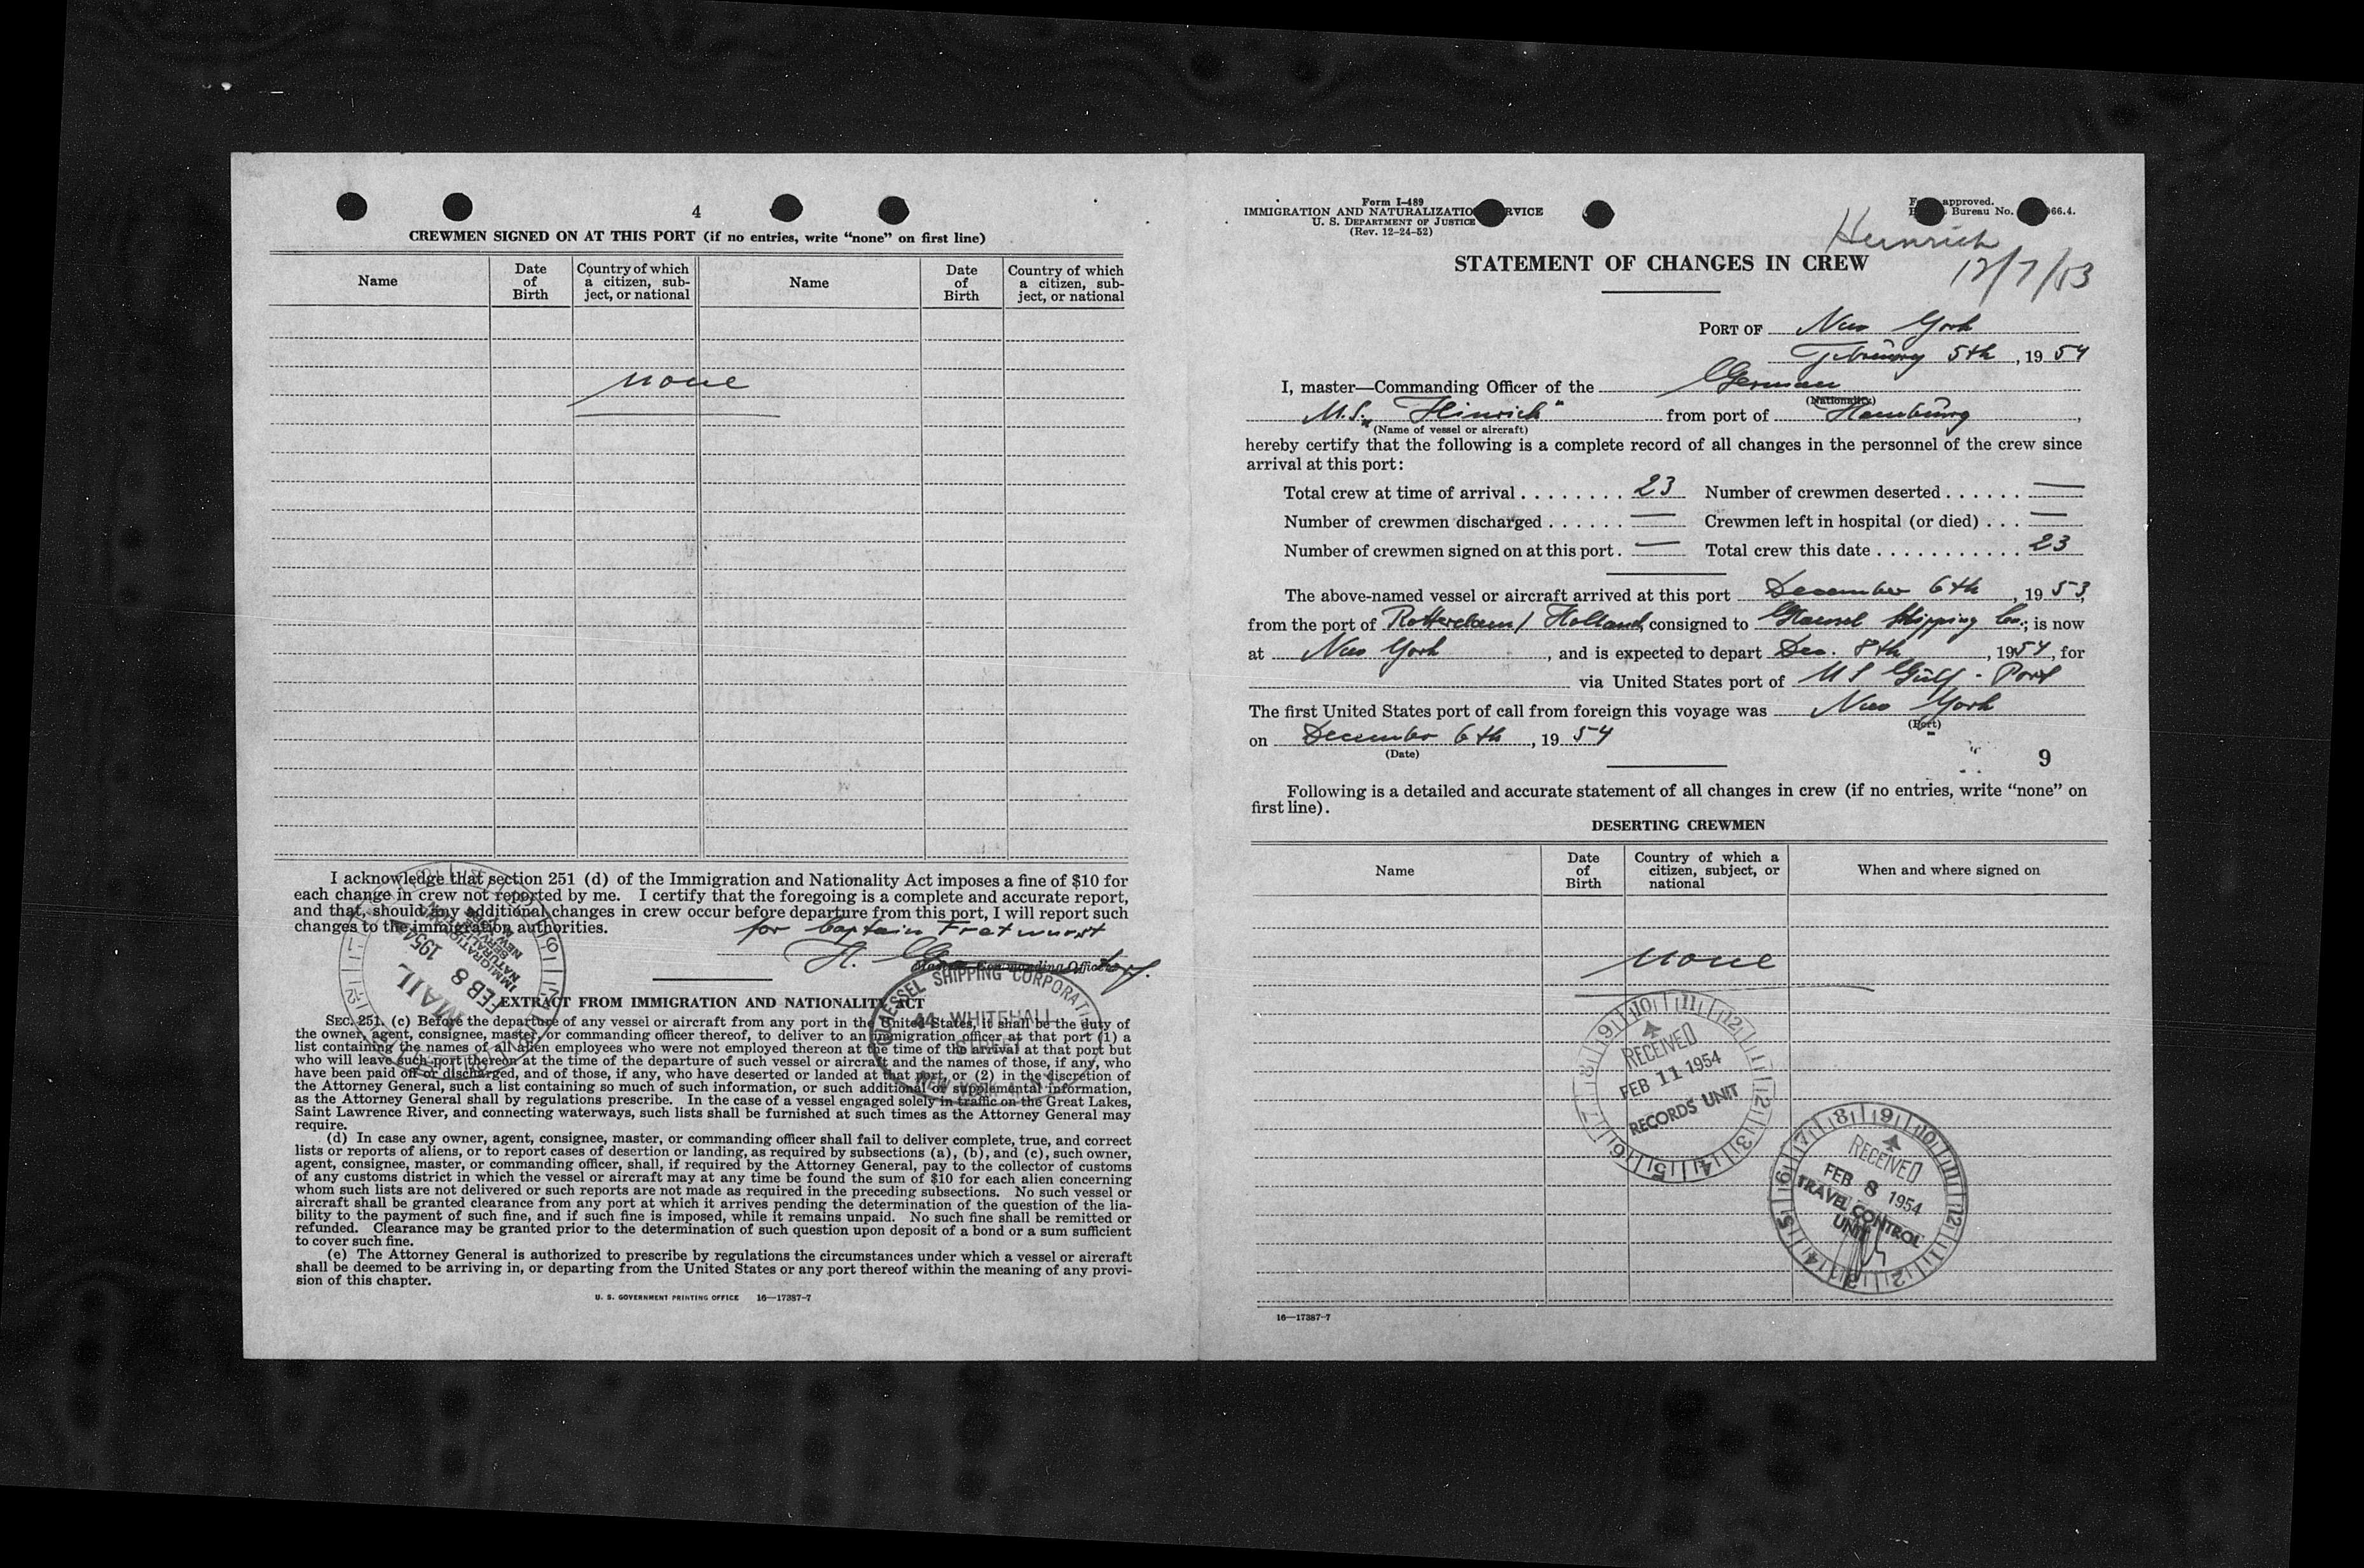 4
CREWMEN SIGNED ON AT THIS PORT (if no entries, write “none” on first line)
Name
Date of Birth
Country of which a citizen, subject, or national
Name
Date of Birth
Country of which a citizen, subject, or national
none
I acknowledge that section 251 (d) of the Immigration and Nationality Act imposes a fine of $10 for
each change in crew not reported by me. I certify that the foregoing is a complete and accurate report,
and that, should any additional changes in crew occur before departure from this port, I will report such
changes to the immigration authorities.
for Captain
H.
Master—Commanding Officer
MAIL
FEB 8 1954
IMMIGRATION
NATURALIZATION
SERVICE
NEW YORK
SHIPPING CORPORATION
44 WHITEHALL
STREET
NEW YORK
EXTRACT FROM IMMIGRATION AND NATIONALITY ACT
SEC. 251. (c) Before the departure of any vessel or aircraft from any port in the United States, it shall be the duty of
the owner, agent, consignee, master, or commanding officer thereof, to deliver to an immigration officer at that port (1) a
list containing the names of all alien employees who were not employed thereon at the time of the arrival at that port but
who will leave such port thereon at the time of the departure of such vessel or aircraft and the names of those, if any, who
have been paid off or discharged, and of those, if any, who have deserted or landed at that port, or (2) in the discretion of
the Attorney General, such a list containing so much of such information, or such additional or supplemental information,
as the Attorney General shall by regulations prescribe. In the case of a vessel engaged solely in traffic on the Great Lakes,
Saint Lawrence River, and connecting waterways, such lists shall be furnished at such times as the Attorney General may
require.
(d) In case any owner, agent, consignee, master, or commanding officer shall fail to deliver complete, true, and correct
lists or reports of aliens, or to report cases of desertion or landing, as required by subsections (a), (b), and (c), such owner,
agent, consignee, master, or commanding officer, shall, if required by the Attorney General, pay to the collector of customs
of any customs district in which the vessel or aircraft may at any time be found the sum of $10 for each alien concerning
whom such lists are not delivered or such reports are not made as required in the preceding subsections. No such vessel or
aircraft shall be granted clearance from any port at which it arrives pending the determination of the question of the lia-
bility to the payment of such fine, and if such fine is imposed, while it remains unpaid. No such fine shall be remitted or
refunded. Clearance may be granted prior to the determination of such question upon deposit of a bond or a sum sufficient
to cover such fine.
(e) The Attorney General is authorized to prescribe by regulations the circumstances under which a vessel or aircraft
shall be deemed to be arriving in, or departing from the United States or any port thereof within the meaning of any provi-
sion of this chapter.
U. S. GOVERNMENT PRINTING OFFICE 16—17387-7
Form I-489
IMMIGRATION AND NATURALIZATION SERVICE
U. S. DEPARTMENT OF JUSTICE
(Rev. 12-24-52)
approved.
Bureau No. 66.4.
Heinrich
12/7/53
STATEMENT OF CHANGES IN CREW
PORT OF New York
February 5th, 1954
I, master—Commanding Officer of the German
(Nationality)
M.S. "Hinrich" from port of Hamburg,
(Name of vessel or aircraft)
hereby certify that the following is a complete record of all changes in the personnel of the crew since
arrival at this port:
Total crew at time of arrival . . . . . . . . 23 Number of crewmen deserted . . . . . . —
Number of crewmen discharged . . . . . . — Crewmen left in hospital (or died) . . . —
Number of crewmen signed on at this port . — Total crew this date . . . . . . . . . . . 23
The above-named vessel or aircraft arrived at this port December 6th, 1953,
from the port of Rotterdam / Holland, consigned to Shipping Co.; is now
at New York, and is expected to depart Dec. 8th, 1954, for
via United States port of U S Gulf - Port
The first United States port of call from foreign this voyage was New York
(Port)
on December 6th, 1954
(Date)
9
Following is a detailed and accurate statement of all changes in crew (if no entries, write “none” on
first line).
DESERTING CREWMEN
Name
Date of Birth
Country of which a citizen, subject, or national
When and where signed on
none
RECEIVED
FEB 11 1954
RECORDS UNIT
RECEIVED
FEB 8 1954
TRAVEL CONTROL
UNIT
16—17387-7